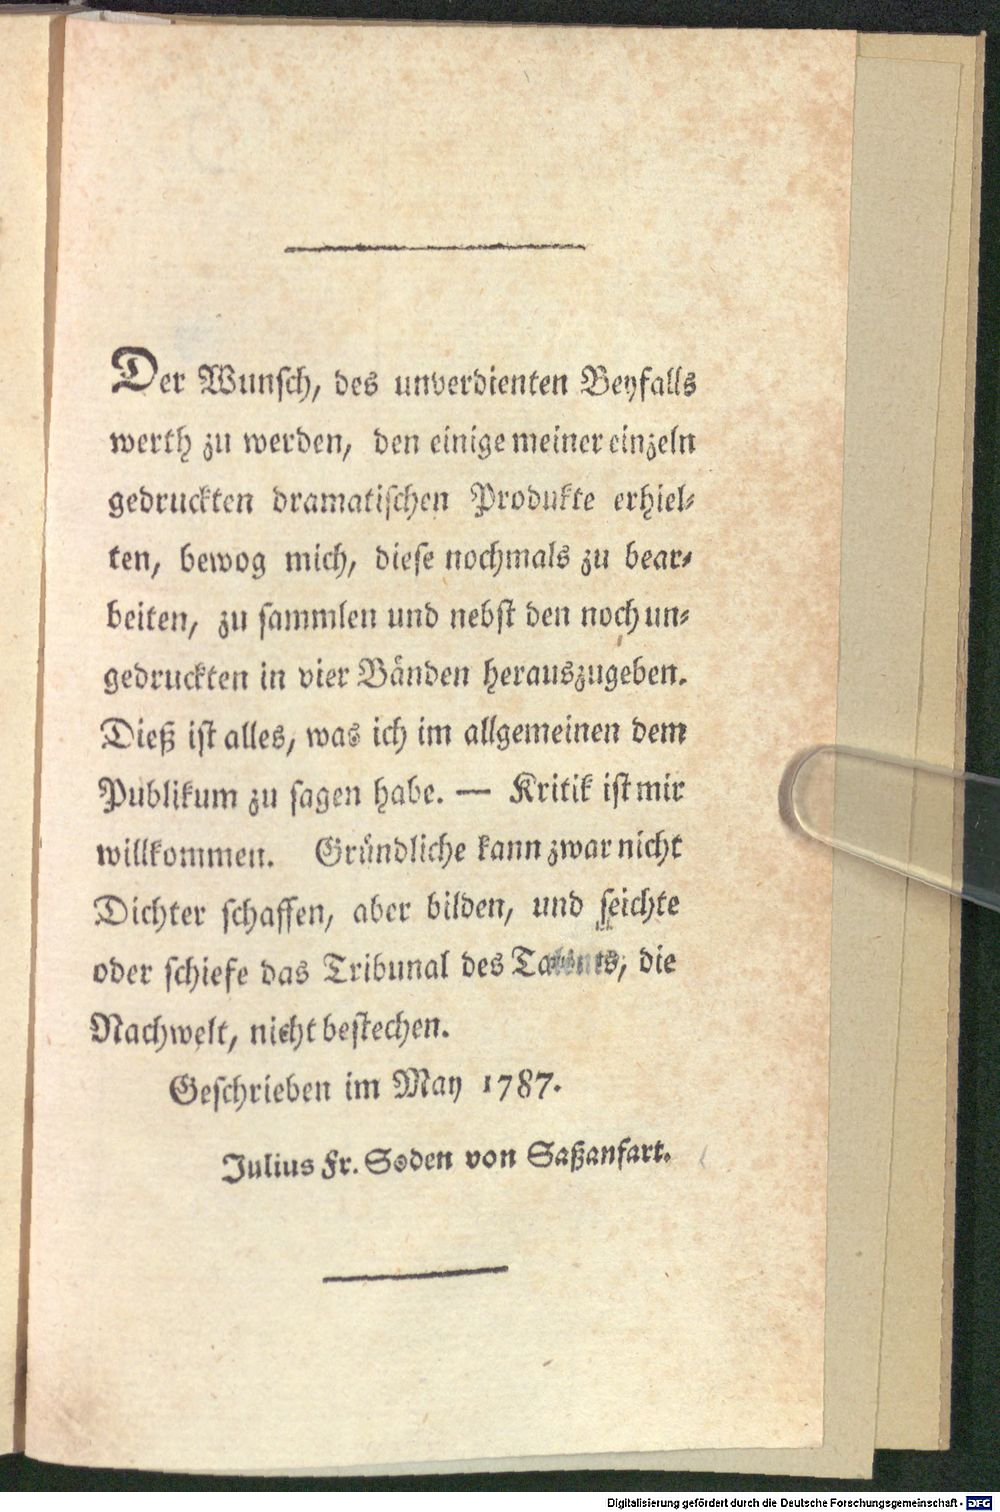 Der Wunſch, des unverdienten Beyfalls
werth zu werden, den einige meiner einzeln
gedruckten dramatiſchen Produkte erhiel⸗
ten, bewog mich, dieſe nochmals zu bear⸗
beiten, zu ſammlen und nebſt den noch un⸗
gedruckten in vier Bänden herauszugeben.
Dieß iſt alles, was ich im allgemeinen dem
Publikum zu ſagen habe. — Kritik iſt mir
willkommen. Gründliche kann zwar nicht
Dichter ſchaffen, aber bilden, und ſeichte
oder ſchiefe das Tribunal des Talents, die
Nachwelt, nicht beſtechen.
Geſchrieben im May 1787.
Julius Fr. Soden von Saßanfart.
Digitalisierung gefördert durch die Deutsche Forschungsgemeinschaft - DFG